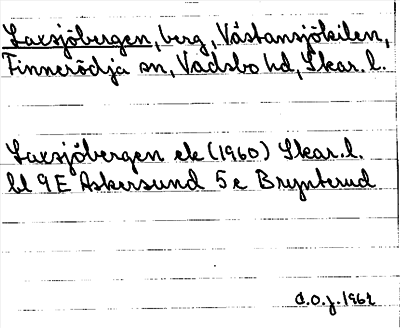 Laxsjöbergen, berg, Västansjökilen,
Finnerödja sn, Vadsbo hd, Skar. l.
Laxsjöbergen ek (1960) Skar. l.
bl 9E Askersund 5e Brynterud
d.o.j. 1962